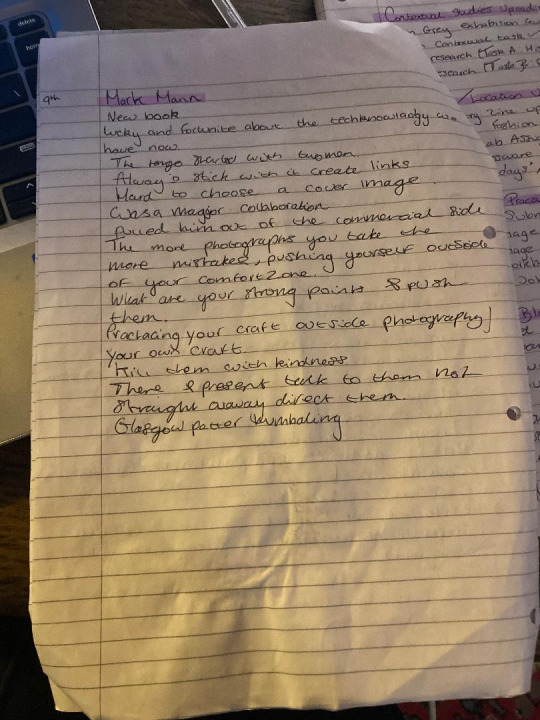 9th
Mark Mann
New book
lucky and fortunite about the techknowladgy we
have now.
The tango started with two men.
Always stick with it create links
Hard to choose a cover image
Was a magor collaboration
Pulled him out of the commercial side
The more photographs you take the
more mistakes, pushing yourself outside
of your comfort zone.
What are your strong points & push
them.
Practacing your craft outside photography/
your own craft.
Kill them with kindness
There & present talk to them not
straight away direct them.
Glasgow patter
Contextual Studies
Grey exhabition
Contextual task
research (Task A
research (Task B
Location
zine
Fashion
days
delete